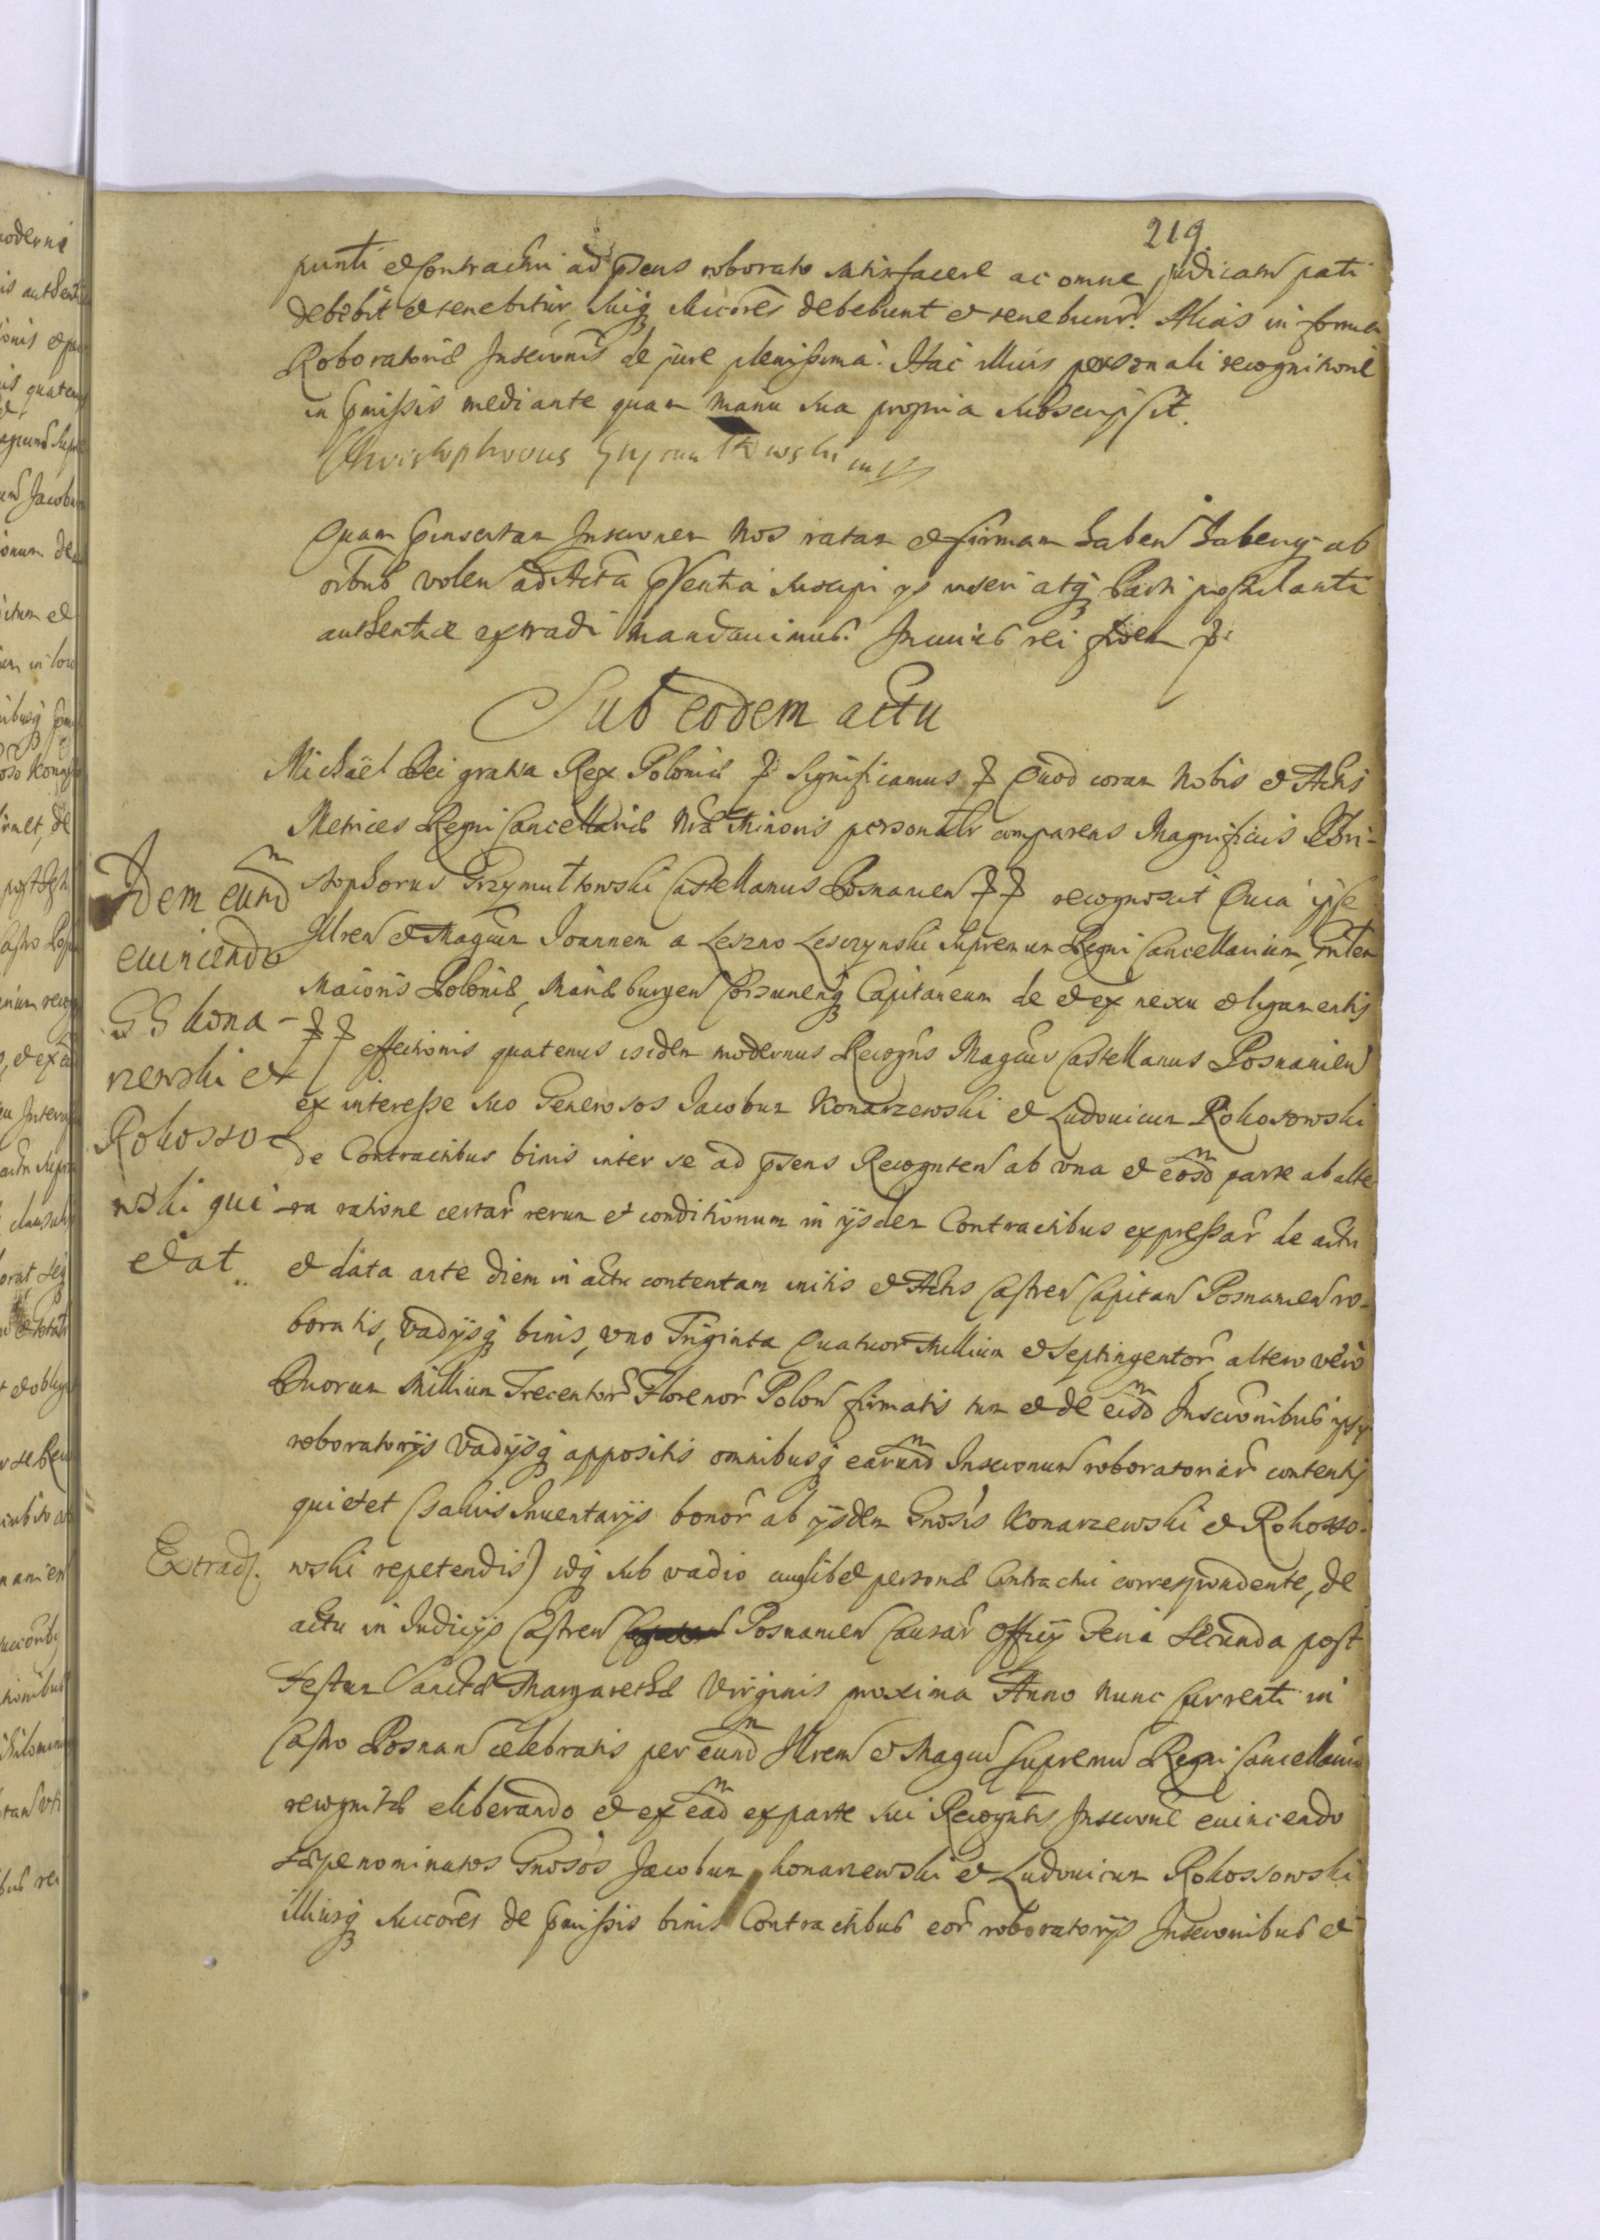 219
puncti et Contractui ad p̃sens roborato satisfacere ac omne judicatu pati
debebit et tenebitur, suiq̃ succores debebunt et tenebunr. Alias in forma
Roboratoriæ Inscrionis de jure plenissima. Hac illius personali recognitione
in p̃missis mediante quam manu sua propria subscripsit.
Christophorus Grzymułtowski mp
Quam p̃insertam Inscrionem Nos ratam et firmam haben haberiq̃ ab
oĩbus volen ad Acta p̃sentia suscipi ijs inseri atq̃ Parti postulanti
authentice extradi mandavimus. In cuius rei fidem
Sub eodem actu
Michaël Dei gratia Rex Poloniæ significamus Quod coram Nobis et Actis
Metrices Regni Cancellariæ Nræ Minoris personalr comparens Magnificus Chri-
stophorus Grzymułtowski Castellanus Posnanien recognovit Quia ipse
Illrem et Magcum Joannem a Leszno Lesczynski Supremum Regni Cancellarium, Gnlem
Maioris Poloniæ, Mariæburgen Corsunenq̃ Capitaneum de et ex nexu et ligamentis
effectionis quatenus isdem modernus Recogns Magcus Castellanus Posnanien
ex interesse suo Generosos Jacobum Konarzewski et Ludovicum Rokosowski
de Contractibus binis inter se ad p̃sens Recognten ab una et eosdm parte ab alte-
ra ratione certar rerum et conditionum in ijsdem Contractibus expressar de actu
et data ante diem in actu contentam initis et Actis Castren Capitan Posnanien ro-
boratis, vadijsq̃ binis, uno Triginta Quatuor Millium et Septingentor, altero vero
Duorum Millium Trecentor Florenor Polon firmatis tum et de eisdm Inscrionibus ipsis
roboratorijs vadijsq̃ appositis omnibusq̃ earundm Inscrionum roboratoriar contentis
quietet (salvis Inventarijs bonor ab ijsdem Gnosis Konarzewski et Rokosso-
wski repetendis) idq̃ sub vadio cuuslibet personæ Contractui correspondente, de
actu in Iudicijs Castren Posnanien Causar Officij Feria Secunda post
Festum Sanctæ Margarethæ Virginis proxima Anno nunc currenti in
Castro Posnan celebratis per eundm Illrem et Magcu Supremu Regni Cancellariu
recognitæ eliberando et ex eadm ex parte sui Recogntis Inscrione evincendo
sæpenominatos Gnosos Jacobum Konarzewski et Ludovicum Rokossowski
illiusq̃ succores de p̃missis binis Contractibus eor roboratorijs Inscrionibus et
Idem eundm
evincendo
GG Kona-
rzewski et
Rokosso-
wski qui-
etat
Extrad.